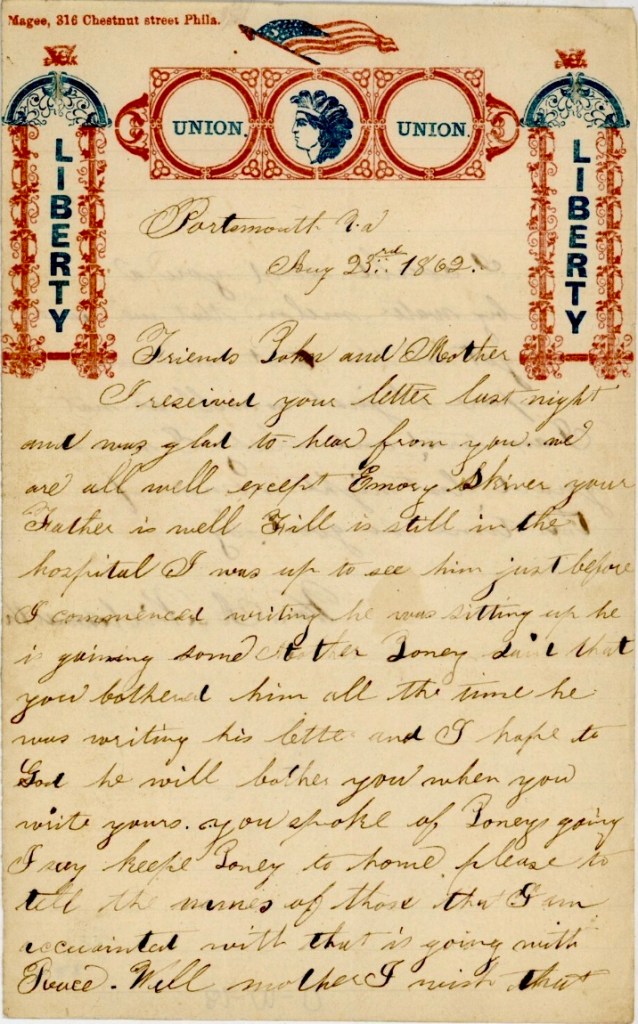 Magee, 316 Chestnut street Phila.
UNION.
UNION.
LIBERTY
LIBERTY
Portsmouth Va
Aug 23rd 1862.
Friends John and Mother
I received your letter last night
and was glad to hear from you. we
are all well except Emory Skiver your
Father is well Fill is still in the
hospital I was up to see him just before
I commenced writing he was sitting up he
is gaining some Mother Boney said that
you bothered him all the time he
was writing his lette and I hope to
God he will bother you when you
write yours. you spoke of Boneys going
I say keepe Boney to home please to
tell the names of those that I am
accuainted with that is going with
. Well mother I wish that